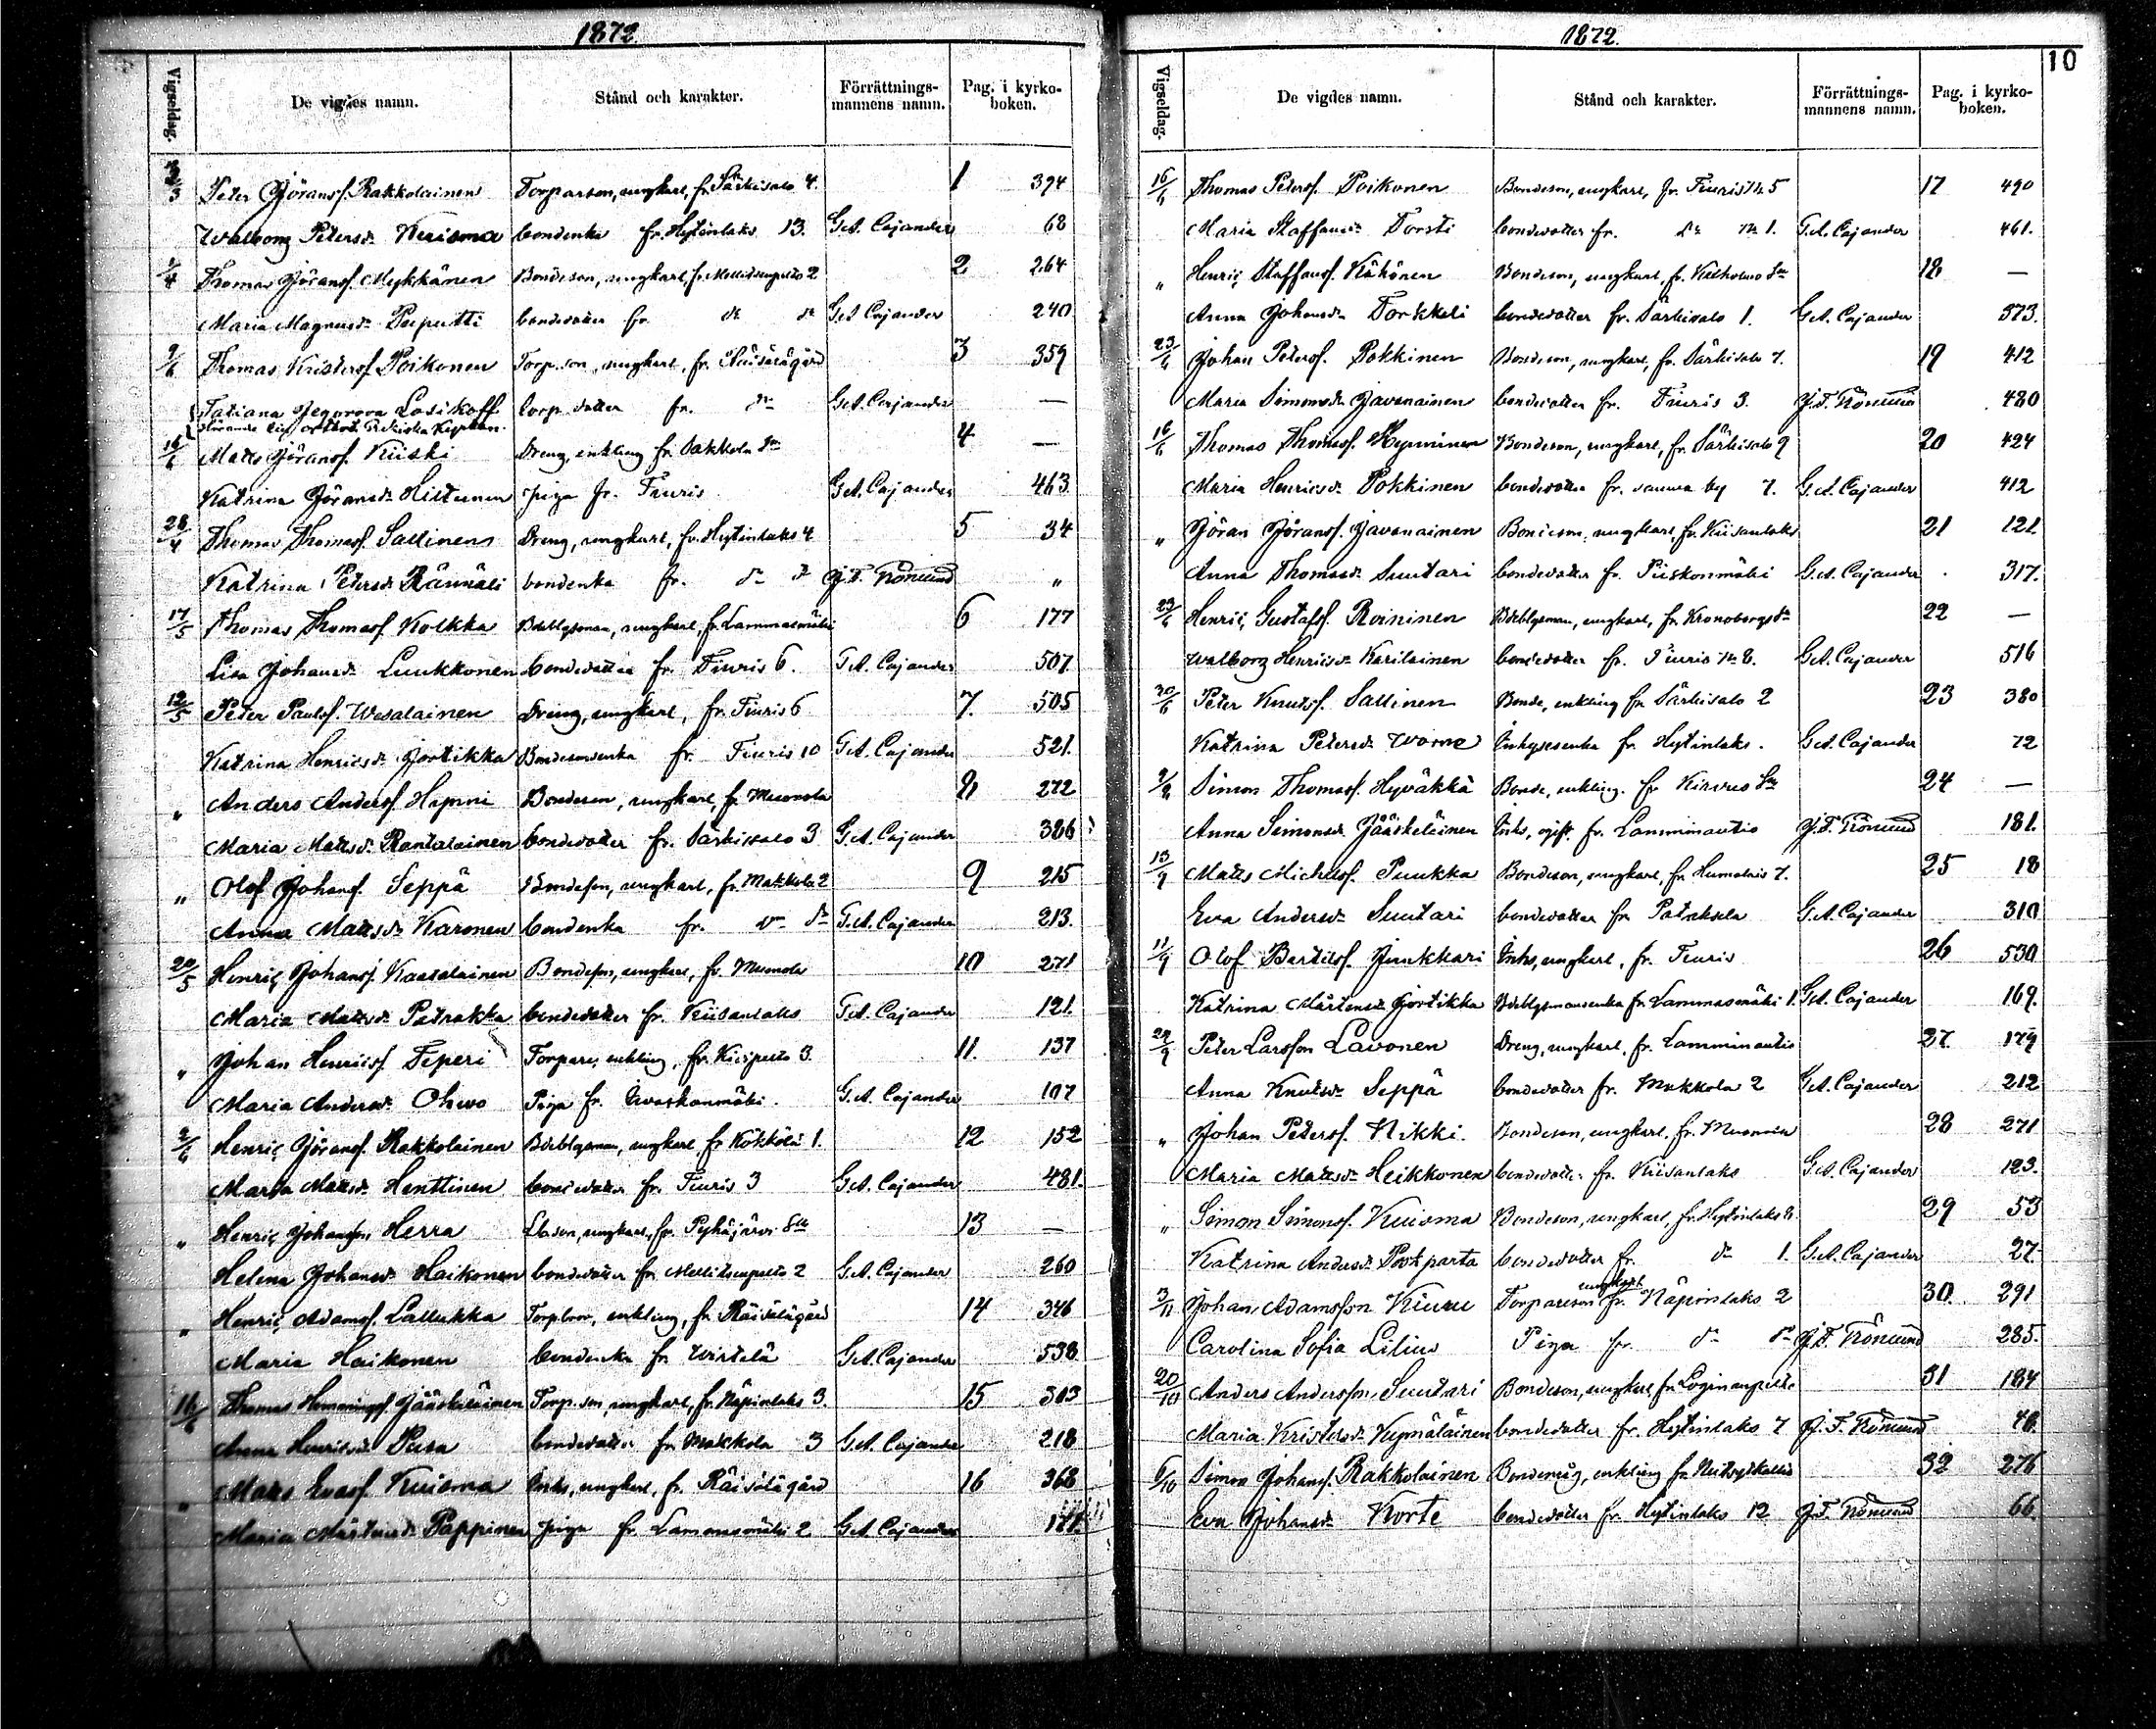 1872.
Vigseldag. De vigdes namn. Stånd och karakter. Förrättnings-mannens namn. Pag. i kyrko-boken.
/3 Peter Göransf. Rakkolainen Torpareson, ungkarl, fr. Särkisalo 4. 1 394
Walborg Petersdr Kuisma bondenka fr. Hytinlaks 13. G.A. Cajander 68
/4 Thomas Göransf. Mykkänen Bondeson, ungkarl, fr. 2 2 264
Maria Magnusdr Puputti bondedotter fr. dr dr G.A. Cajander 240
9/6 Thomas Kristersf. Poikonen Torp.son, ungkarl, fr. Räisälägård 3 359
Tatiana Jegorova Losikoff torp.dotter fr. dr G.A. Cajander —
16/6 Matts Göransf. Kiiski Dreng, enkling fr. Sakkola Sn 4 —
Katrina Göransdr Hiltunen piga fr. Tiuris G.A. Cajander 463
28/4 Thomas Thomasf. Sallinen Dreng, ungkarl, fr. Hytinlaks 4 5 34
Katrina Petersdr Rännäli bondenka fr. dr dr J.F. Krönlund "
17/5 Thomas Thomasf. Kolkka ungkarl, fr. Lammasmäki 6 177
Lisa Johansdr Luukkonen bondedotter fr. Tiuris 6. G.A. Cajander 507
12/5 Peter Paulsf. Wesalainen Dreng, ungkarl, fr. Tiuris 6 7. 505
Katrina Henricsdr Jortikka Bondesonsenka fr. Tiuris 10 G.A. Cajander 521.
" Anders Andersf. Hapmi Bondeson, ungkarl, fr. Musmola 8 272
Maria Mattsdr Rantalainen bondedotter fr. Särkisalo 3 G.A. Cajander 386
" Olof Johansf. Seppä Bondeson, ungkarl, fr. Makkola 2 9 215
Anna Mattsdr Karonen bondenka fr. dr dr G.A. Cajander 213.
20/5 Henric Johansf. Kaasalainen Bondeson, ungkarl, fr. Musmola 10 271
Maria Mattsdr Patrakka bondedotter fr. Kiisanlaks G.A. Cajander 121.
" Johan Henricsf. Teperi Torpare, enkling, fr. 3. 11. 137
Maria Andersdr Ohvo Piga fr. G.A. Cajander 107
2/6 Henric Göransf. Rakkolainen ungkarl fr. Kökköli 1. 12 152
Maria Mattsdr Henttinen bondedotter fr. Tiuris 3 G.A. Cajander 481.
" Henric Johansson Herra ungkarl, fr. Pyhäjärvi Sn 13 —
Helena Johansdr Haikonen bondedotter fr. 2 G.A. Cajander 260
" Henric Adamsf. Lallukka enkling, fr. Räisälägård 14 346
Maria Haikonen bondenka fr. Wirtelä G.A. Cajander 538
16/6 Thomas Henningsf. Jääskeläinen Torp.son, ungkarl, fr. Näpinlaks 3. 15 303
Anna Henricsdr Pusa bondedotter fr. Makkola 3 G.A. Cajander 218
" Matts Evasf. Kuisma Inhs, ungkarl, fr. Räisälägård 16 368
Maria Mårtensdr Pappinen piga fr. Lammasmäki 2 G.A. Cajander
1872.
10
Vigseldag. De vigdes namn. Stånd och karakter. Förrättnings-mannens namn. Pag. i kyrko-boken.
16/6 Thomas Petersf. Poikonen Bondeson, ungkarl, fr. Tiuris № 5 17 490
Maria Staffansdr Torsti bondedotter fr. dr № 1. G.A. Cajander 461.
" Henric Staffansf. Kähönen Bondeson, ungkarl, fr. Kexholms Sn 18 —
Anna Johansdr Torkkeli bondedotter fr. Särkisalo 1. G.A. Cajander 373.
23/6 Johan Petersf. Pokkinen Bondeson, ungkarl, fr. Särkisalo 7. 19 412
Maria Simonsdr Javanainen bondedotter fr. Tiuris 3. J.F. Krönlund 480
16/6 Thomas Thomasf. Hynninen Bondeson, ungkarl, fr. Särkisalo 9 20 424
Maria Henricsdr Pokkinen bondedotter fr. samma by 7. G.A. Cajander 412
" Göran Göransf. Javanainen Bondeson, ungkarl, fr. Kiisanlaks 21 121.
Anna Thomasdr Suutari bondedotter fr. Piiskonmäki G.A. Cajander 317.
23/6 Henric Gustafsf. Roininen ungkarl, fr. Kronoborgs Sn 22 —
Walborg Henricsdr Karilainen bondedotter fr. Tiuris № 8. G.A. Cajander 516
30/6 Peter Knutsf. Sallinen Bonde, enkling fr. Särkisalo 2 23 380
Katrina Petersdr Worne Inhysesenka fr. Hytinlaks. G.A. Cajander 72
Simon Thomasf. Hyväkkä Bonde, enkling, fr. Kirvus Sn 24 —
Anna Simonsdr Jääskeläinen Inhs, ogift, fr. Lamminautio J.F. Krönlund 181.
13/9 Matts Michelsf. Puukka Bondeson, ungkarl, fr. Humalais 7. 25 18
Eva Andersdr Suutari bondedotter fr. G.A. Cajander 310
11/9 Olof Bertilsf. Junkkari Inhs, ungkarl, fr. Tiuris 26 530
Katrina Mårtensdr Jortikka fr. Lammasmäki 1. G.A. Cajander 169.
29/9 Peter Larsson Lavonen Dreng, ungkarl, fr. Lamminautio 27. 179
Anna Knutsdr Seppä bondedotter fr. Makkola 2 G.A. Cajander 212
" Johan Petersf. Nikki. Bondeson, ungkarl, fr. Musmola 28 271
Maria Mattsdr Heikkonen bondedotter fr. Kiisanlaks G.A. Cajander 123.
" Simon Simonsf. Kuisma Bondeson, ungkarl, fr. Hytinlaks 8. 29 53
Katrina Andersdr Pootparta bondedotter fr. dr 1. G.A. Cajander 27.
3/11 Johan Adamsson Kiuru Torpareson ungkarl fr. Näpinlaks 2 30. 291
Carolina Sofia Lilius Piga fr. dr dr J.F. Krönlund 285.
20/10 Anders Andersson Suutari Bondeson, ungkarl fr. 31 184
Maria Kristersdr Kymäläinen bondedotter fr. Hytinlaks 7 J.F. Krönlund 40.
6/10 Simon Johansf. Rakkolainen enkling fr. 32 276
Eva Johansdr Korte bondedotter fr. Hytinlaks 12 J.F. Krönlund 66.